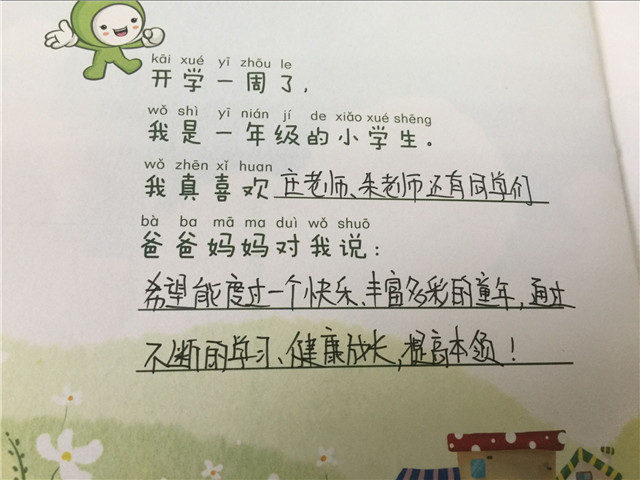 kāi xué yī zhōu le
开学一周了，
wǒ shì yī nián jí de xiǎo xué shēng
我是一年级的小学生。
wǒ zhēn xǐ huan
我真喜欢庄老师、朱老师还有同学们
bà ba mā ma duì wǒ shuō
爸爸妈妈对我说：
希望能度过一个快乐、丰富多彩的童年，通过
不断的学习、健康成长，提高本领！